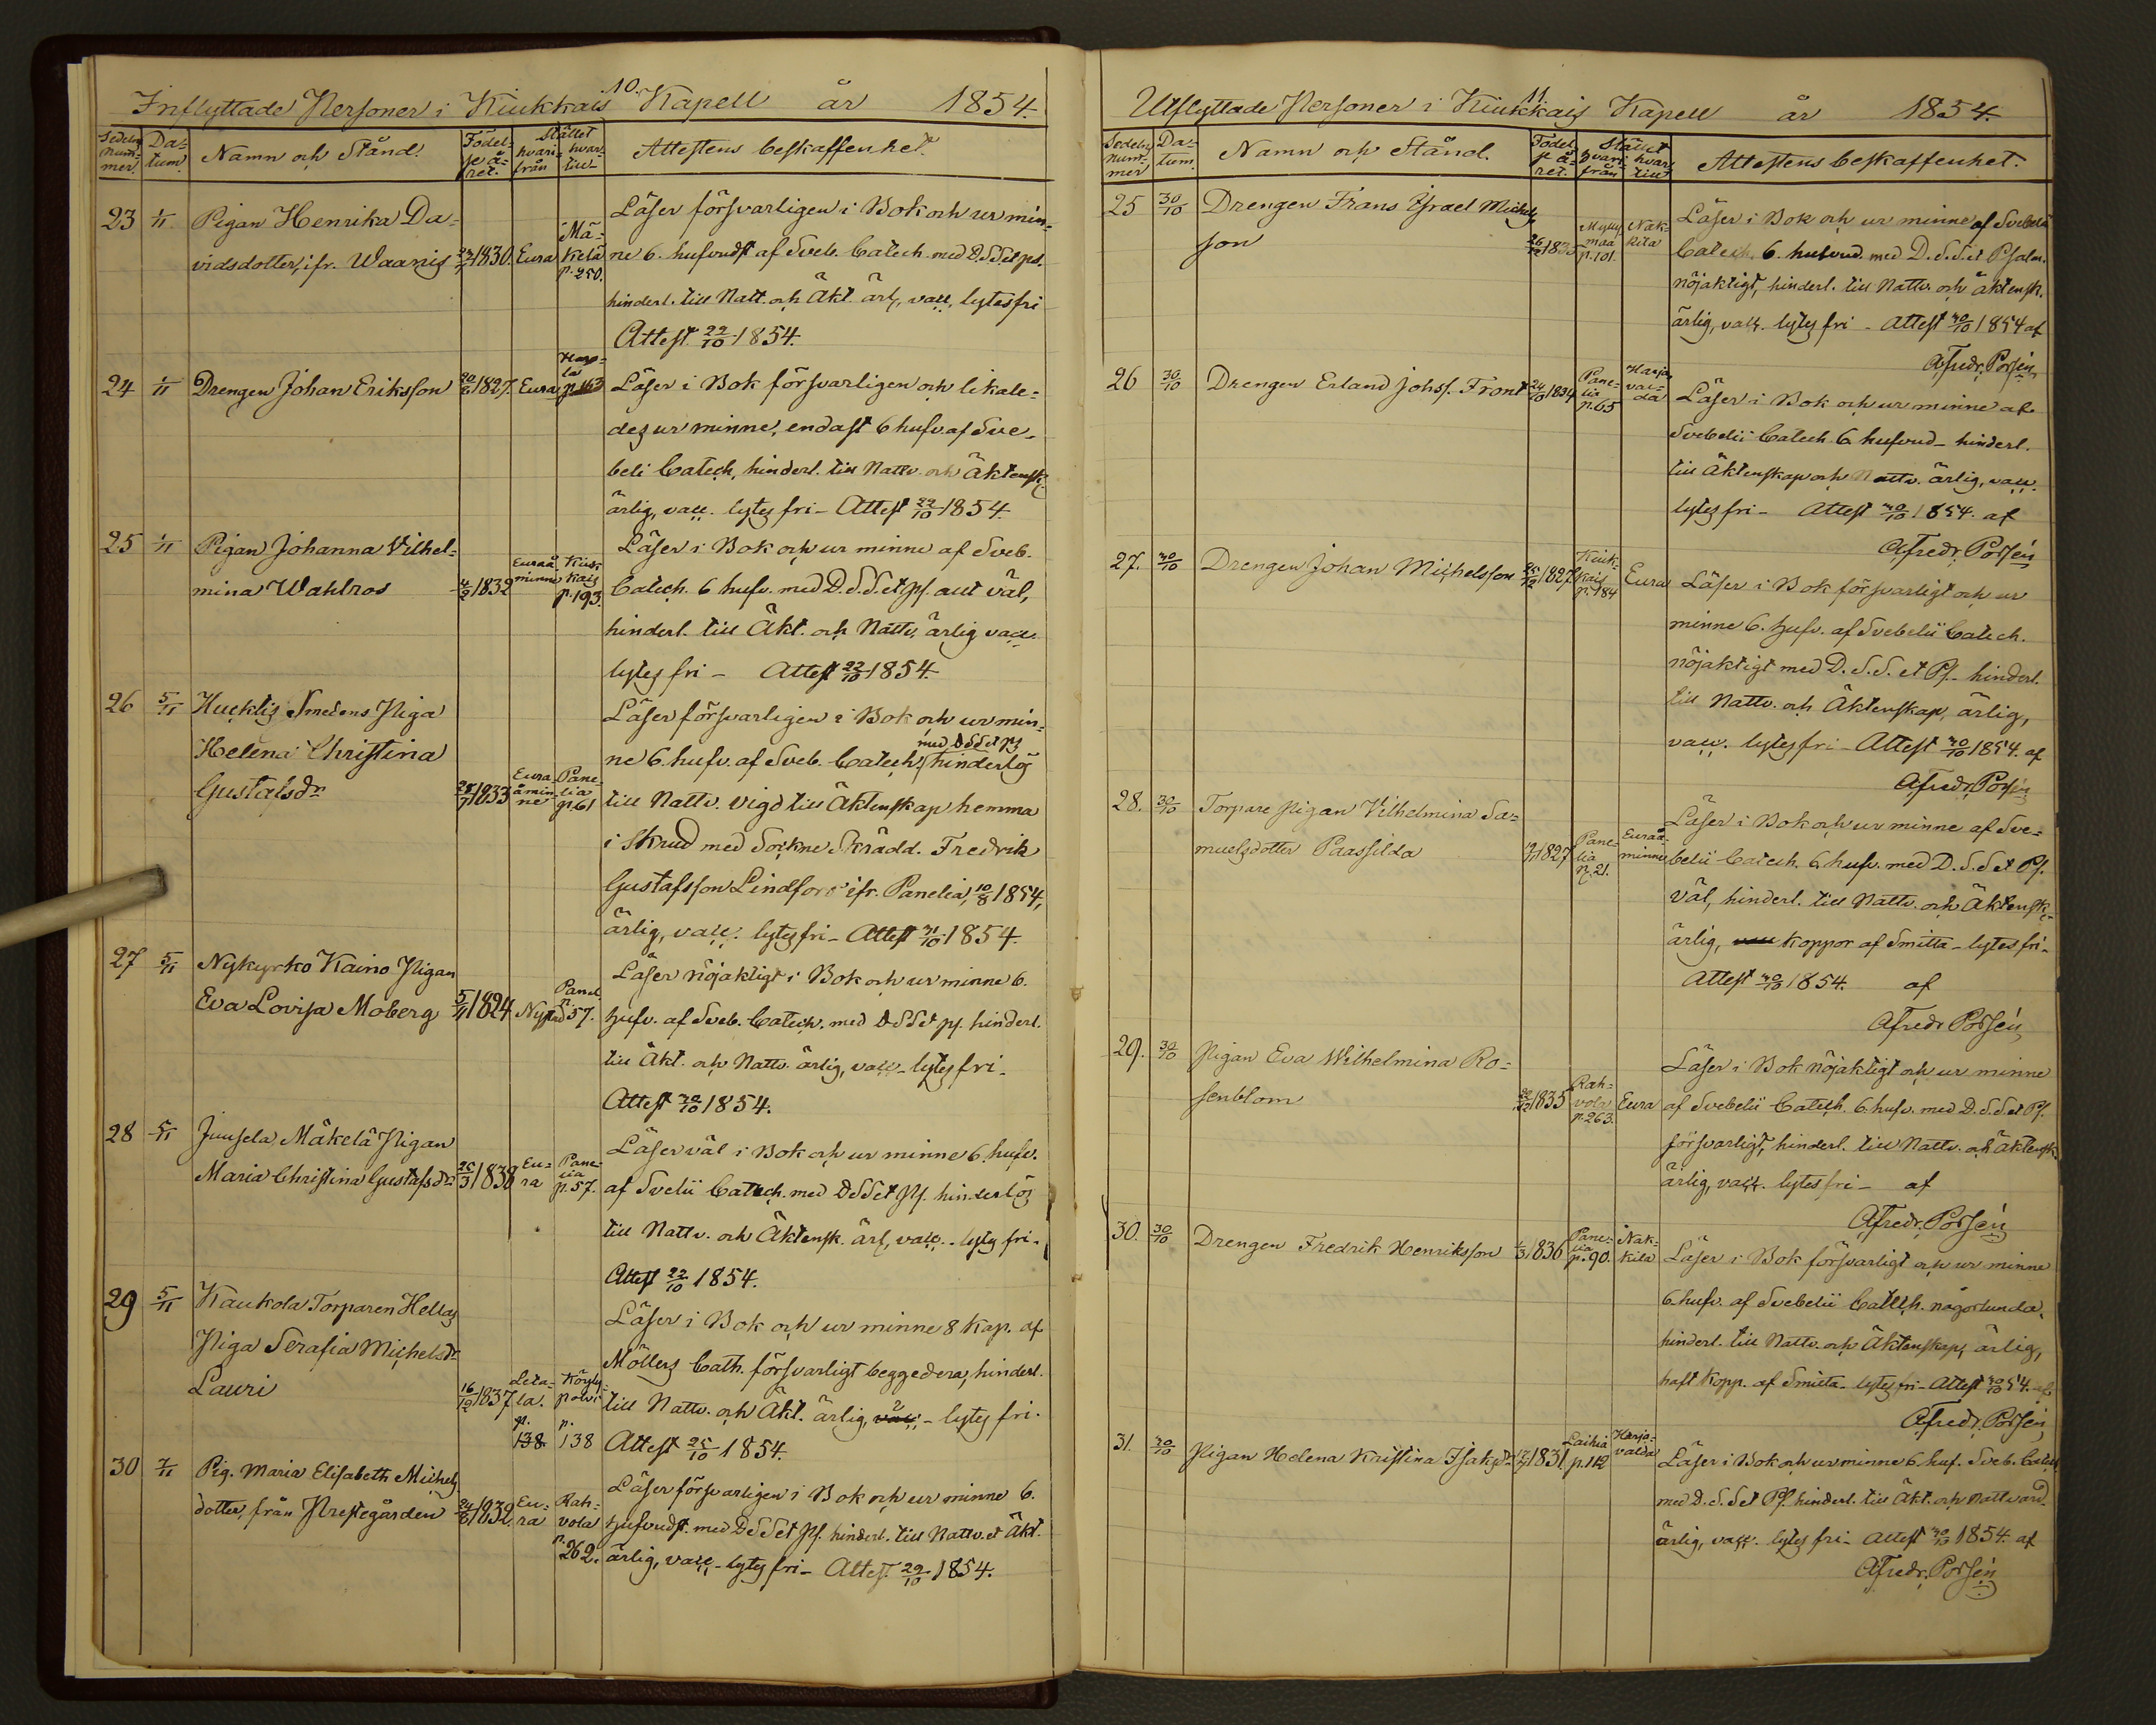 10.
Inflyttade Personer i Kiukkais Kapell år 1854.
Sedelns num-mer. Da-tum. Namn och Stånd. Födel-se å-ret. Stället hvari-från hvar-till Attestens beskaffenhet.
23 1/11 Pigan Henrika Da-
vidsdotter, ifr. Waanis 1830. Eura Mä-kelä p. 250.
Läser försvarligen i Bok och ur min-
ne 6. hufvudst af Sveb. Catech. med D.S.S. et ps.
hinderl. till Natt. och Äkt. ärl, vacc, lytesfri
Attest 22/10 1854.
24 1/11 Drengen Johan Eriksson 20/6 1827. Eura Haro-la p. 163
Läser i Bok försvarligen och likale-
des ur minne, endast 6 hufv. af Sve-
beli Catech, hinderl. till Nattv. och Äktensk.
ärlig, vacc. lytes fri - Attest 22/10 1854.
25 1/11 Pigan Johanna Vilhel-
mina Wahlros 4/2 1832 Euraå minne Kiuk kais p. 193.
Läser i Bok och ur minne af Sveb.
Catech. 6 hufv. med D.S.S. et ps. allt väl,
hinderl. till Äkt. och Nattv. ärlig vacc.
lytes fri - Attest 22/10 1854.
26 5/11 Hucklis Smedens Piga
Helena Christina
Gustafsdr 28/7 1833 Eura åmin-ne Pane-lia p. 61
Läser försvarligen i Bok och ur min-
med DSS et ps
ne 6. hufv. af Sveb. Catech. hinderlös
till Nattv. vigd till Äktenskap hemma
i Skrud med Sockne Skrädd. Fredrik
Gustafsson Lindfors ifr. Panelia, 10/8 1854,
ärlig, vacc. lytes fri - Attest 31/10 1854.
27 5/11 Nykyrko Kaino Pigan
Eva Lovisa Moberg 5/11 1824 Nyk Panel. p. 57.
Läser nöjaktigt i Bok och ur minne 6.
hufv. af Sveb. Catech. med DSS et ps. hinderl.
till Äkt. och Nattv. ärlig, vacc - lytes fri -
Attest 30/10 1854.
28 5/11 Juusela Mäkelä Pigan
Maria Christina Gustafsdr 25/3 1838 Eu-ra Pane-lia p. 57.
Läser väl i Bok och ur minne 6. hufv.
af Svelii Catech. med DSS et ps. hinderlös
till Nattv. och Äktensk. ärl, vacc. - lytes fri -
Attest 22/10 1854.
29 5/11 Kaukola Torparen Hellas
Piga Serafia Michelsdr
Lauri 16/12 1837 Leta-la. p. 138 Köyly-polvi p. 138
Läser i Bok och ur minne 8 Kap. af
Möllers Cath. försvarligt beggedera, hinderl.
till Nattv. och Äkt. ärlig, vacc. - lytes fri.
Attest 25/10 1854.
30 7/11 Pig. Maria Elisabeth Michels
dotter, från Prestegården 24/6 1832. Eu-ra Rah-vola p. 262.
Läser försvarligen i Bok och ur minne 6.
hufvudst. med DSS et ps. hinderl. till Nattv. et Äkt.
ärlig, vacc. - lytes fri - Attest 29/10 1854.
11.
Utflyttade Personer i Kiukkais Kapell år 1854.
Sedelns num-mer Da-tum. Namn och Stånd. Födel-se å-ret. Stället hvari-från hvar-till Attestens beskaffenhet.
25 30/10 Drengen Frans Israel Michels
son 26/12 1835 Mylly maa p. 101. Nak-kila
Läser i Bok och ur minne af Svebelii
Catech. 6. hufvud. med D.S.S. et Psalm.
nöjaktigt, hinderl. till Nattv. och äktensk.
ärlig, vacc. lytes fri - Attest 30/10 1854 af
A Fredr. Porsén
26 30/10 Drengen Erland Johss. Front 24/10 1834 Pane-lia p. 65 Harja val-da
Läser i Bok och ur minne af
Svebelii Catech. 6. hufvud - hinderl.
till Äktenskap och Nattv. ärlig, vacc.
lytes fri - Attest 30/10 1854. af
A Fredr. Porsén
27. 30/10 Drengen Johan Michelsson 25/12 1827. Kiuk-kais p. 184 Eura
Läser i Bok försvarligt och ur
minne 6. hufv. af Svebelii Catech.
nöjaktigt med D.S.S. et Ps. - hinderl.
till Nattv. och Äktenskap, ärlig,
vacc. lytes fri - Attest 30/10 1854. af
A Fredr. Porsén
28. 30/10 Torpare Pigan Vilhelmina Sa-
muelsdotter Paassilda 1827 Pane-lia p. 21. Euraå-minne
Läser i Bok och ur minne af Sve-
belii Catech. 6. hufv. med D.S.S. et Ps.
väl, hinderl. till Nattv. och Äktensk.
ärlig, vacc koppor af Smitta - lytes fri -
Attest 30/10 1854. af
A Fredr Porsén
29. 30/10 Pigan Eva Wilhelmina Ro-
senblom 22/12 1835 Rah-vola p. 263. Eura
Läser i Bok nöjaktigt och ur minne
af Svebelii Catech. 6. hufv. med D.S.S. et Ps.
försvarligt, hinderl. till Nattv. och Äktensk.
ärlig, vacc. lytes fri - af
A Fredr. Porsén
30. 30/10 Drengen Fredrik Henriksson 1/3 1836 Pane-lia p. 90. Nak-kila
Läser i Bok försvarligt och ur minne
6. hufv. af Svebelii Catech. någorlunda,
hinderl. till Nattv. och Äktenskap, ärlig,
haft Kopp. af Smitta - lytes fri - Attest 30/10 54. af
A Fredr. Porsén
31. 30/10 Pigan Helena Kristina Isaksdr 1831. Laihia p. 112 Harja-valda
Läser i Bok och ur minne 6. huf. Sveb. Catech
med D.S.S. et Ps. hinderl. till Äkt. och Nattvard.
ärlig, vacc. lytes fri - Attest 30/10 1854. af
A Fredr. Porsén